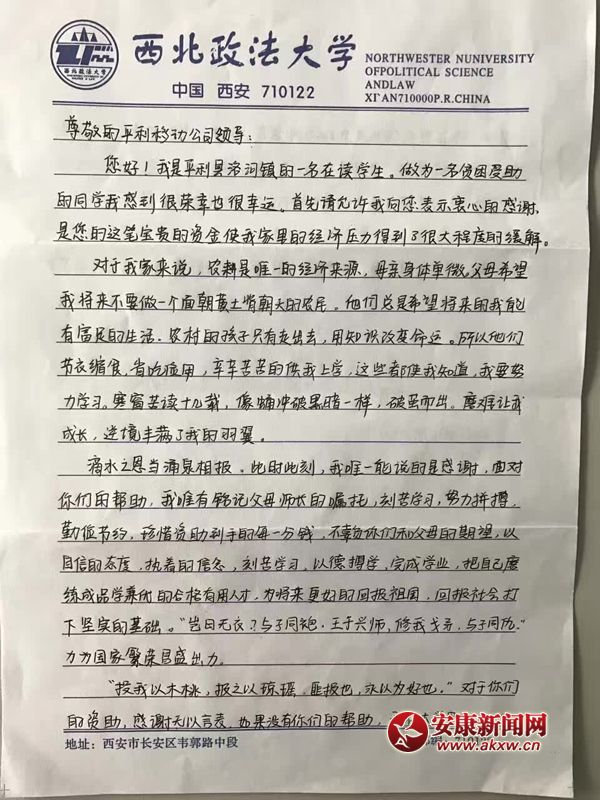 西北政法大学
NORTHWESTER NUNIVERSITY
OFPOLITICAL SCIENCE
ANDLAW
中国 西安 710122
XI'AN710000P.R.CHINA
尊敬的平利移动公司领导：
您好！我是平利县洛河镇的一名在读学生。做为一名侵困受助
的同学我感到很荣幸也很幸运。首先请允许我向您表示衷心的感谢，
是您的这笔宝贵的资金使我家里的经济压力得到了很大程度的缓解。
对于我家来说，农耕是唯一的经济来源，母亲身体单微，父母希望
我将来不要做一个面朝黄土背朝天的农民。他们总是希望将来的我能
有富足的生活。农村的孩子只有走出去，用知识改变命运。所以他们
节衣缩食，省吃俭用，辛辛苦苦的供我上学，这些都使我知道，我要努
力学习。寒窗苦读十几载，像蛹冲破黑暗一样，破茧而出。磨难让我
成长，逆境丰满了我的羽翼。
滴水之恩当涌泉相报。此时此刻，我唯一能说的是感谢，面对
你们的帮助，我唯有铭记父母师长的嘱托，刻苦学习，努力拼搏，
勤俭节约，珍惜资助到手的每一分钱，不辜负你们和父母的期望，以
自信的态度，执着的信念，刻苦学习，以德撑学，完成学业，把自己磨
练成品学兼优的合格有用人才，为将来更好的回报祖国，回报社会打
下坚实的基础。“岂曰无衣？与子同袍。王于兴师，修我戈矛，与子同仇。”
力为国家繁荣昌盛出力。
“投我以木桃，报之以琼瑶，匪报也，永以为好也。”对于你们
的资助，感谢无以言表，如果没有你们的帮助，
地址：西安市长安区韦郭路中段
安康新闻网
www.akxw.cn